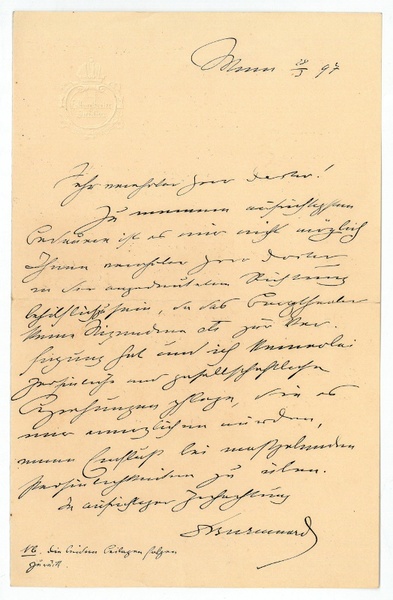 Wien 28/3 97
Sehr verehrter Herr Doctor!
Zu meinem aufrichtigsten
Bedauern ist es mir nicht möglich
Ihnen verehrter Herr Doctor
in der angedeuteten Richtung
behilflich zu sein, da das
keine Stipendien zur Ver-
fügung hat und ich keinerlei
persönliche und gesellschaftliche
Beziehungen pflege, die es
mir ermöglichen würden,
einen Einfluß bei maßgebenden
Persönlichkeiten zu üben.
In aufrichtiger Hochachtung
NB. Die beiden Beilagen folgen
zurück.